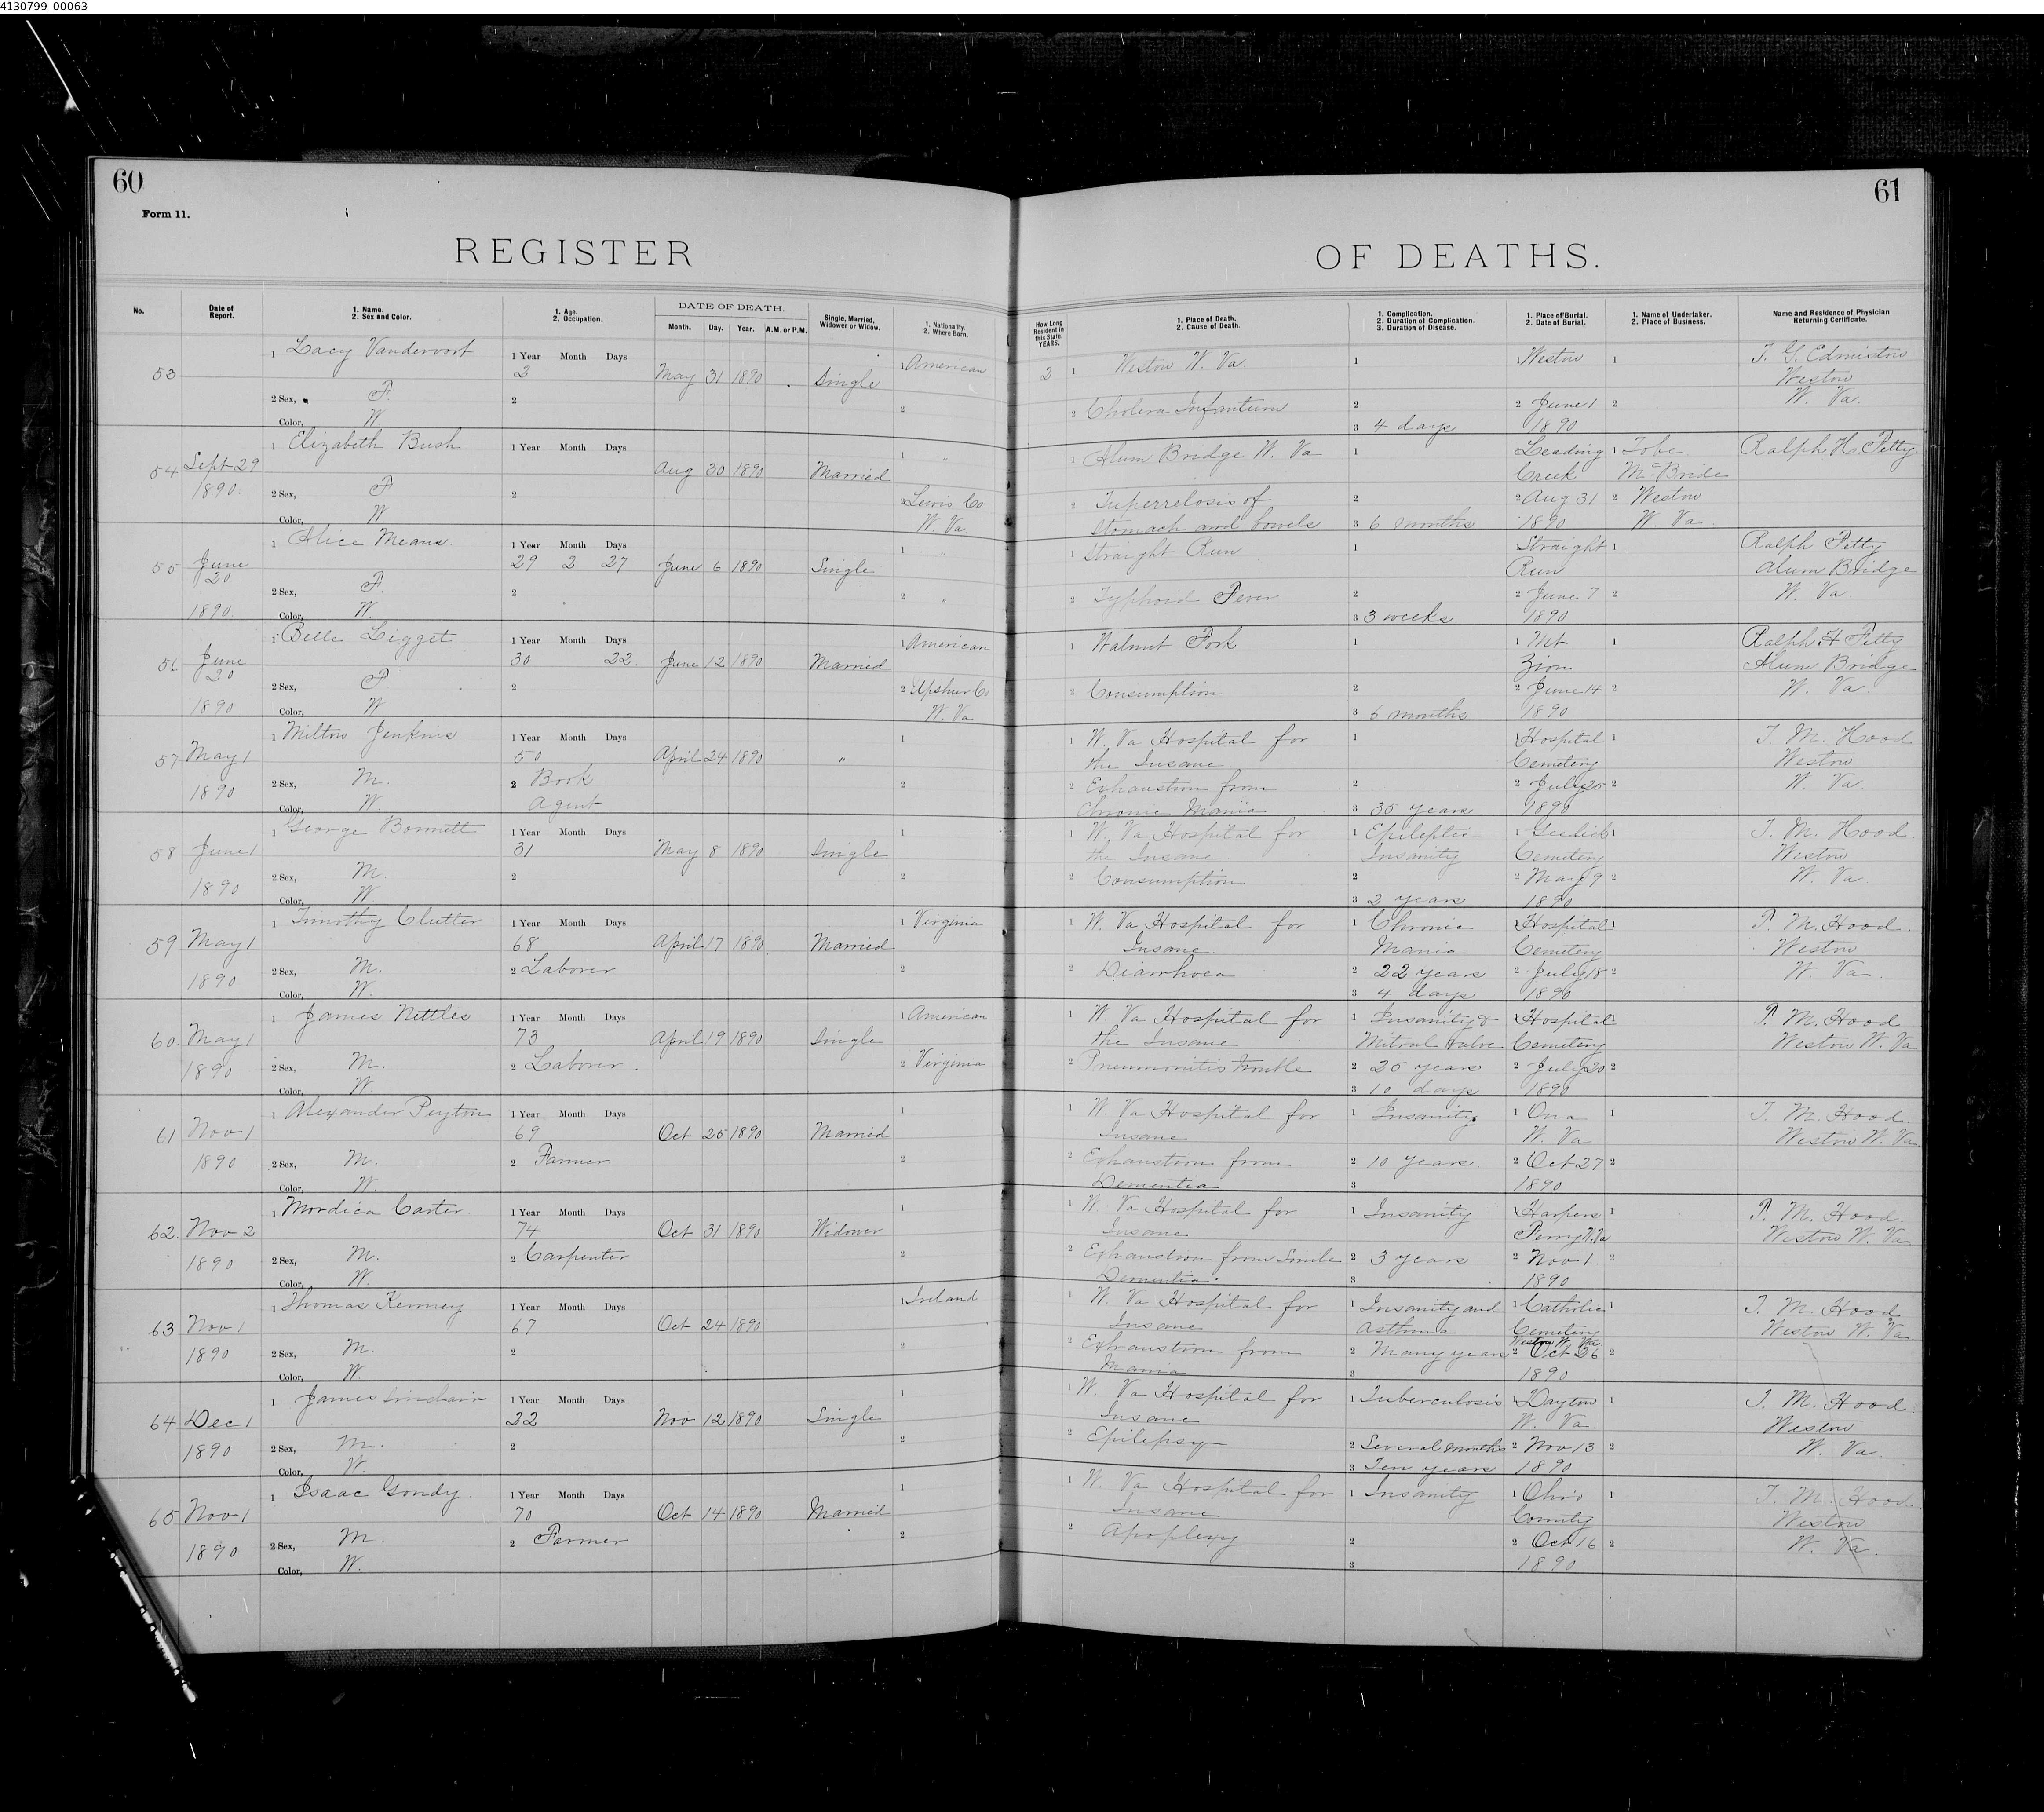 4130799_00063
60
Form 11.
REGISTER
No.
Date of Report.
1. Name.
2. Sex and Color.
1. Age.
2. Occupation.
DATE OF DEATH.
Month. Day. Year. A.M. or P.M.
Single, Married, Widower or Widow.
1. Nationality.
2. Where Born.
61
OF DEATHS.
How Long Resident in this State. YEARS.
1. Place of Death.
2. Cause of Death.
1. Complication.
2. Duration of Complication.
3. Duration of Disease.
1. Place of Burial.
2. Date of Burial.
1. Name of Undertaker.
2. Place of Business.
Name and Residence of Physician Returning Certificate.
53 1 Lacy Vandervort 1 Year Month Days 2 May 31 1890 Single 1 American 2 1 Weston W. Va. 1 1 Weston 1 T. G. Edmiston
Weston
2 Sex, F. 2 2 2 Cholera Infantum 2 2 June 1 2 W. Va.
Color, W 3 4 days 1890
54 Sept 29 1 Elizabeth Bush 1 Year Month Days Aug 30 1890 Married 1 " 1 Alum Bridge W. Va 1 1 Leading 1 Tobe Ralph H. Petty
Creek McBride
1890. 2 Sex, F 2 2 Lewis Co 2 Tuperrelosis of 2 2 Aug 31 2 Weston
Color, W. W. Va. Stomach and bowels 3 6 months 1890 W. Va.
55 June 1 Alice Means 1 Year Month Days 29 2 27 June 6 1890 Single 1 " 1 Straight Run 1 Straight 1 Ralph Petty
20 Run Alum Bridge
2 Sex, F. 2 2 " 2 Typhoid Fever 2 2 June 7 2 W. Va.
1890. Color, W. 3 3 weeks 1890
56 June 1 Belle Ligget 1 Year Month Days 30 22 June 12 1890 Married 1 American 1 Walnut Fork 1 1 Mt 1 Ralph H Petty
30 Zion Alum Bridge
2 Sex, F 2 2 Upshur Co 2 Consumption 2 2 June 14 2 W. Va.
1890 Color, W W. Va 3 6 months 1890
57 May 1 1 Milton Jenkins 1 Year Month Days 50 April 24 1890 " 1 1 W. Va Hospital for 1 1 Hospital 1 T. M. Hood
the Insane Cemetery Weston
1890 2 Sex, M. 2 Book 2 2 Exhaustion from 2 2 July 25 2 W. Va
Color, W. Agent Chronic Mania 3 35 years 1890
58 June 1 1 George Bonnett 1 Year Month Days 31 May 8 1890 Single 1 1 W. Va Hospital for 1 Epileptic 1 1 T. M. Hood
the Insane. Insanity Cemetery Weston
1890 2 Sex, M. 2 2 2 Consumption 2 2 May 9 2 W. Va.
Color, W. 3 2 years 1890
59 May 1 1 Timothy Clutter 1 Year Month Days 68 April 17 1890 Married 1 Virginia 1 W. Va Hospital for 1 Chronic 1 Hospital 1 T. M. Hood.
Insane. Mania Cemetery Weston
1890 2 Sex, M. 2 Laborer 2 2 Diarrhoea 2 22 years 2 July 18 2 W. Va.
Color, W. 3 4 days 1890
60. May 1 1 James Nettles 1 Year Month Days 73 April 19 1890 Single 1 American 1 W. Va Hospital for 1 Insanity & 1 Hospital 1 T. M. Hood
the Insane Mitral valve Cemetery Weston W. Va
1890 2 Sex, M. 2 Laborer. 2 Virginia 2 Pneumonitis trouble 2 25 years 2 July 20 2
Color, W. 3 10 days 1890
61 Nov 1 1 Alexander Peyton 1 Year Month Days 69 Oct 25 1890 Married 1 1 W. Va Hospital for 1 Insanity. 1 Ona 1 T. M. Hood.
Insane W. Va Weston W. Va.
1890 2 Sex, M. 2 Farmer 2 2 Exhaustion from 2 10 years. 2 Oct 27 2
Color, W. Dementia 3 1890
62. Nov 2 1 Mordica Carter 1 Year Month Days 74 Oct 31 1890 Widower 1 1 W. Va Hospital for 1 Insanity 1 Harpers 1 T. M. Hood.
Insane Ferry W. Va Weston W. Va
1890 2 Sex, M. 2 Carpenter 2 2 Exhaustion from Senile 2 3 years 2 Nov 1. 2
Color, W. Dementia. 3 1890
63 Nov 1 1 Thomas Kenney 1 Year Month Days 67 Oct 24 1890 1 Ireland 1 W. Va Hospital for 1 Insanity and 1 Catholic 1 T. M. Hood
Insane Asthma Cemetery Weston W. Va.
Weston W. Va
1890 2 Sex, M. 2 2 2 Exhaustion from 2 Many years 2 Oct 26 2
Color, W. Mania 3 1890
64 Dec 1 1 James Sinclair 1 Year Month Days 22 Nov 12 1890 Single 1 1 W. Va Hospital for 1 Tuberculosis 1 Dayton 1 T. M. Hood.
Insane W. Va. Weston
1890 2 Sex, M. 2 2 2 Epilepsy 2 Several months 2 Nov 13 2 W. Va.
Color, W. 3 Ten years 1890
65 Nov 1 1 Isaac Gondy. 1 Year Month Days 70 Oct 14 1890 Married 1 1 W. Va Hospital for 1 Insanity 1 Ohio 1 T. M. Hood.
Insane County Weston
1890 2 Sex, M. 2 Farmer 2 2 Apoplexy 2 2 Oct 16 2 W. Va.
Color, W. 3 1890